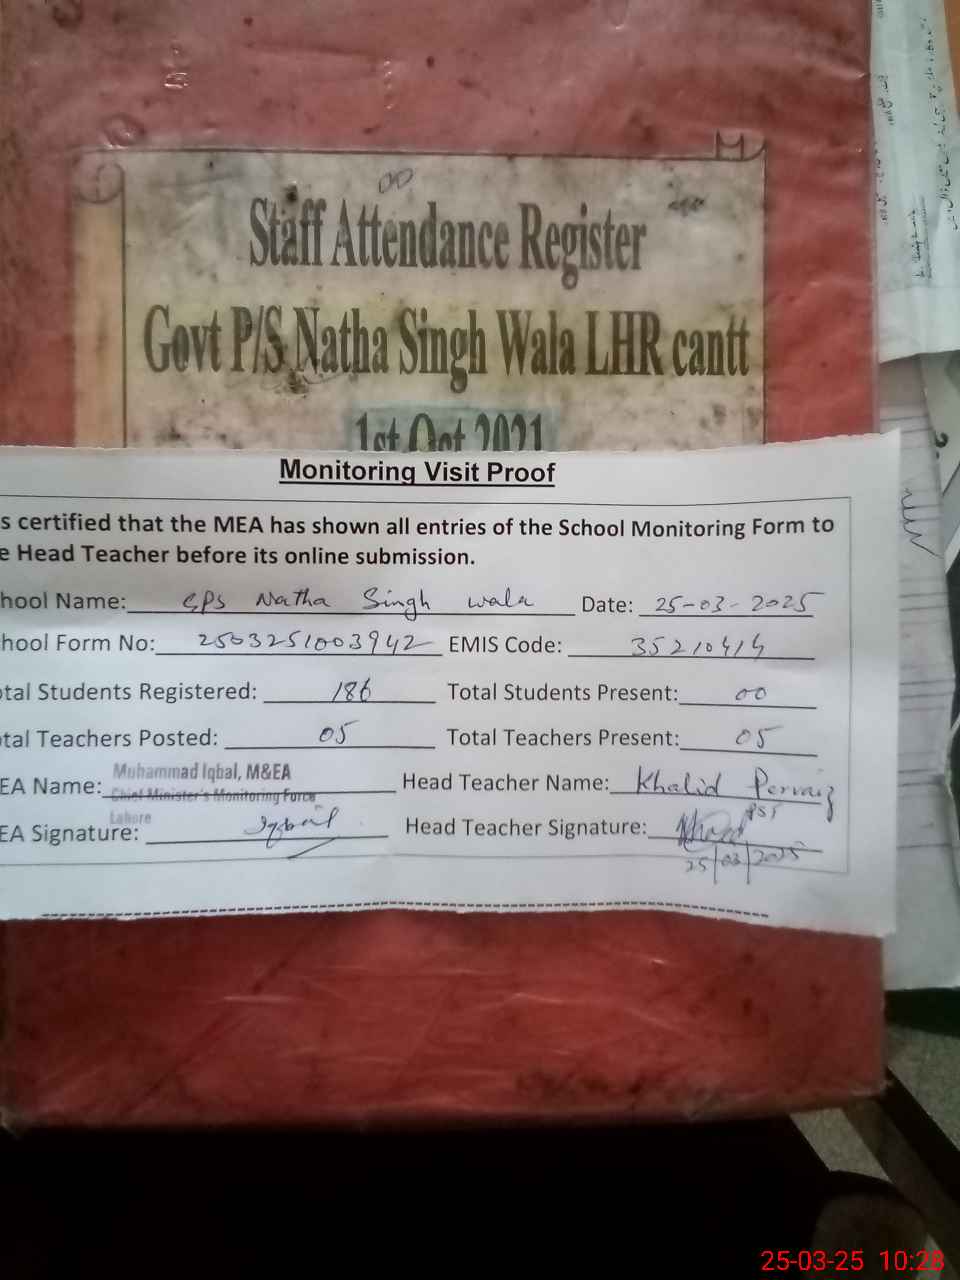 Staff Attendance Register
Govt P/S Natha Singh Wala LHR cantt
1st Oct 2021
Monitoring Visit Proof
s certified that the MEA has shown all entries of the School Monitoring Form to
e Head Teacher before its online submission.
hool Name: GPS Natha Singh wala Date: 25-03-2025
hool Form No: 2503251003942 EMIS Code: 35210414
otal Students Registered: 186 Total Students Present: 00
otal Teachers Posted: 05 Total Teachers Present: 05
EA Name: Muhammad Iqbal, M&EA Head Teacher Name: Khalid Pervaiz
Chief Minister's Monitoring Force
PST
Lahore
EA Signature: Iqbal Head Teacher Signature:
25/03/2025
25-03-25 10:28